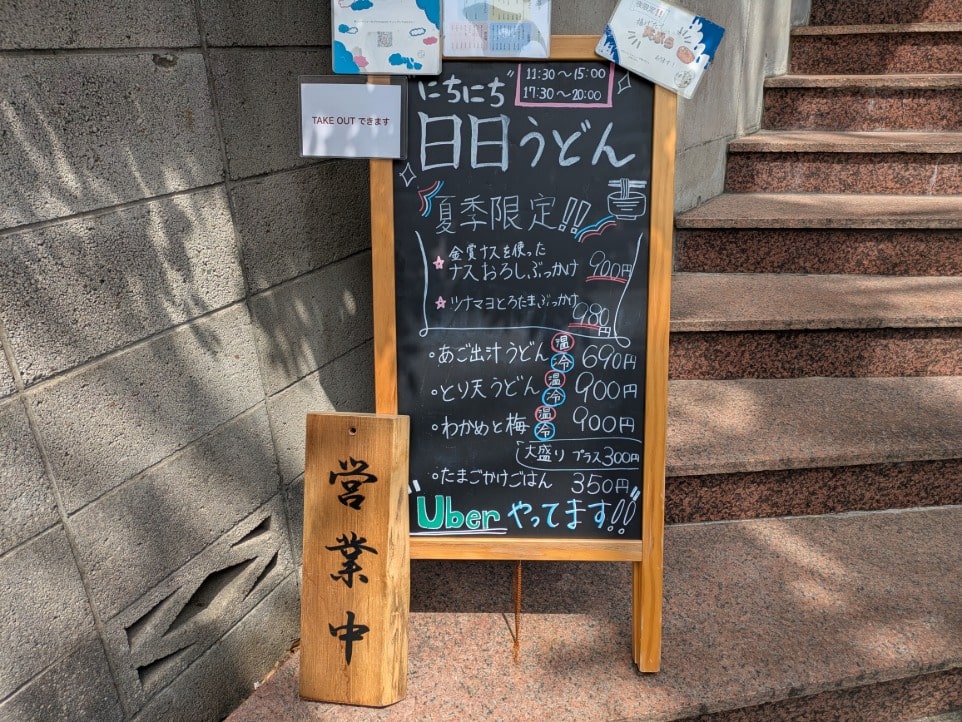 TAKE OUT できます
にちにち
11:30～15:00
17:30～20:00
日日うどん
夏季限定!!
★金賞ナスを使った
ナスおろしぶっかけ 900円
★ツナマヨとろたまぶっかけ
980円
・あご出汁うどん 温 冷 690円
・とり天うどん 温 冷 900円
・わかめと梅 温 冷 900円
大盛り プラス300円
・たまごかけごはん 350円
"Uber やってます!!"
営業中